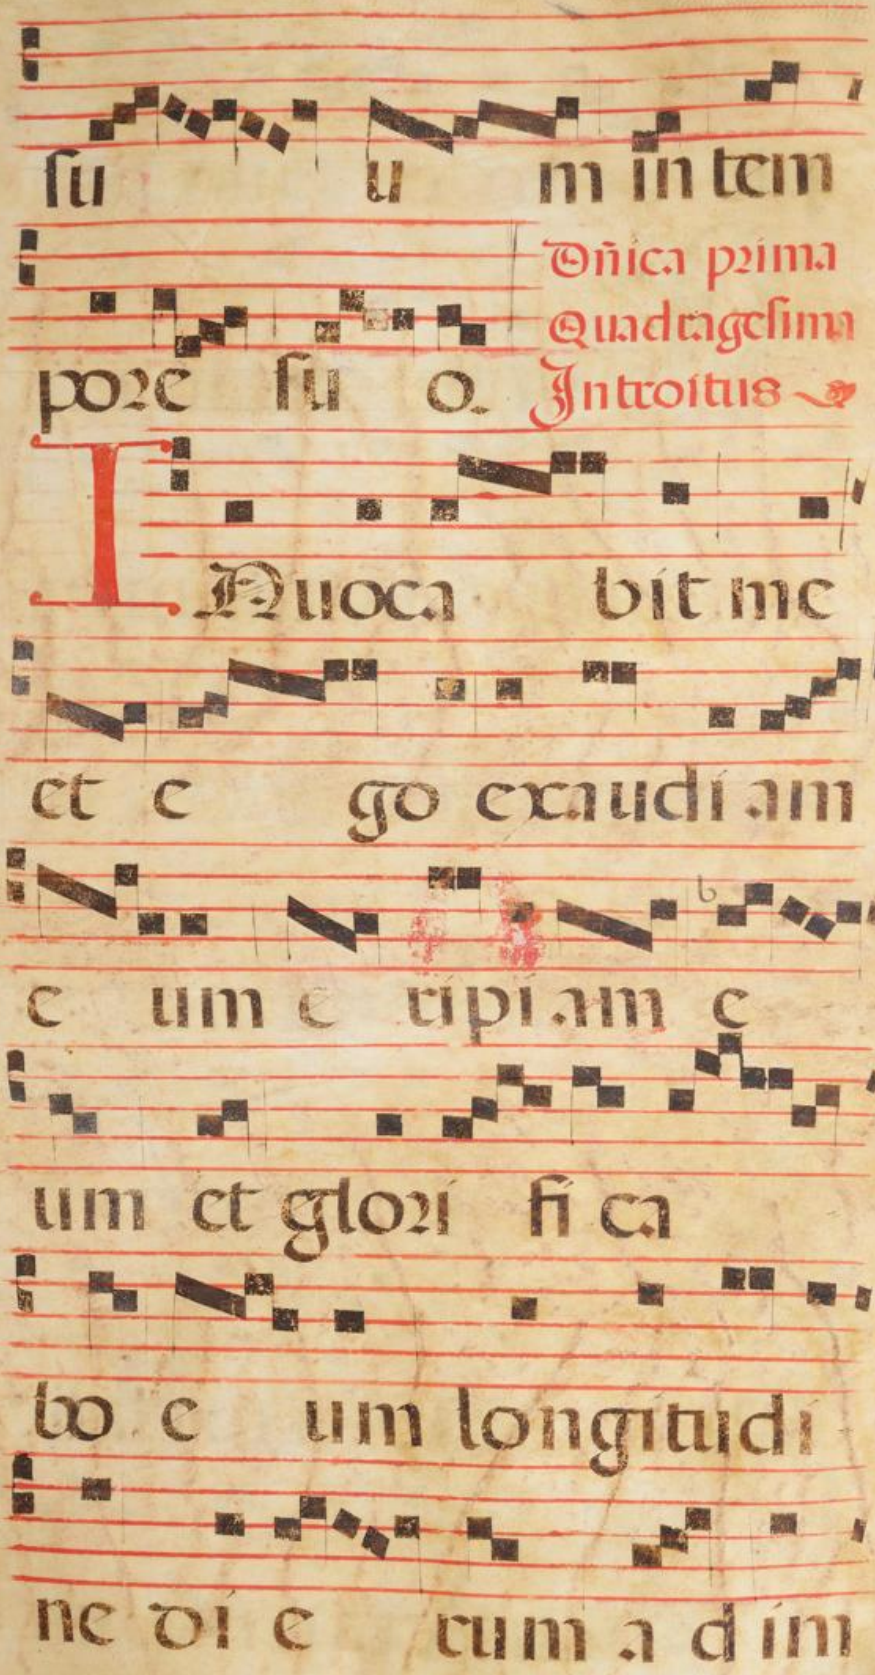 su u m in tem
pore su o.
Dñica prima
Quadragesima
Introitus
INuoca bit me
et e go exaudi am
e um e ripi am e
um et glori fi ca
bo e um longitudi
ne di e rum a d im